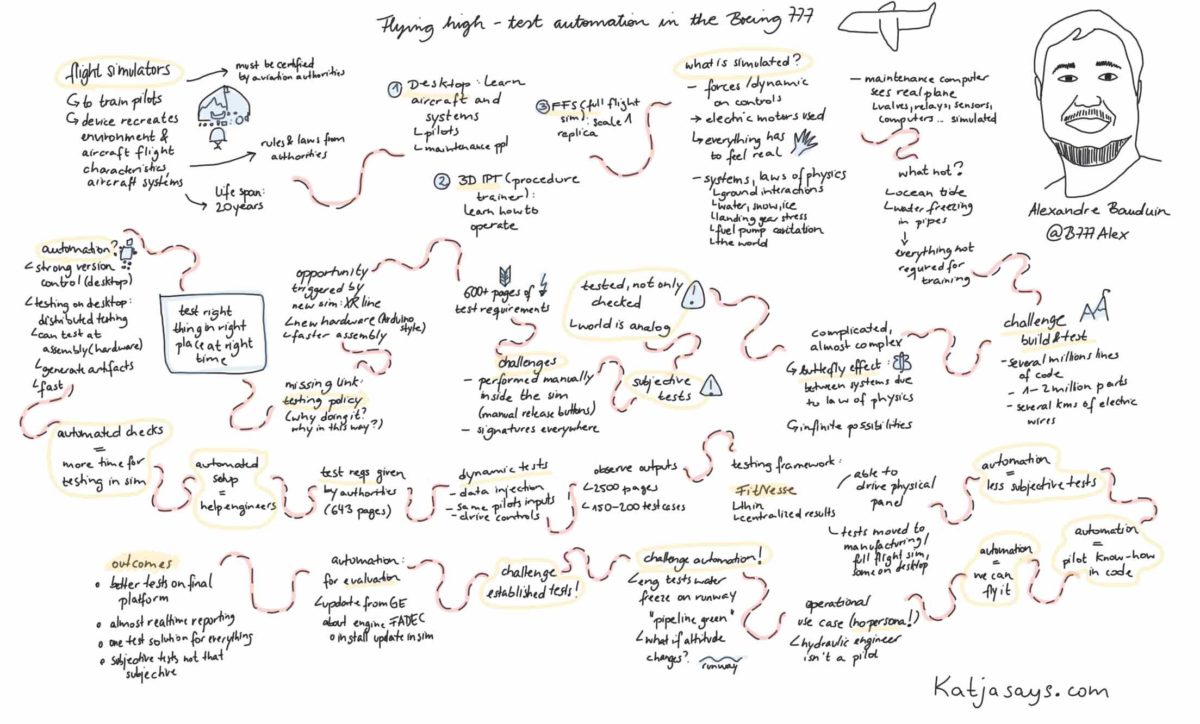 Flying high - test automation in the Boeing 777
flight simulators
must be certified
by aviation authorities
to train pilots
device recreates
environment &
aircraft flight
characteristics,
aircraft systems
rules & laws from
authorities
Life span:
20 years
1 Desktop: Learn
aircraft and
systems
pilots
maintenance ppl
2 3D IPT (procedure
trainer):
learn how to
operate
3 FFS (full flight
sim): scale 1
replica
what is simulated?
- forces/dynamic
on controls
→ electric motors used
everything has
to feel real
- systems, laws of physics
ground interactions
water, snow, ice
landing gear stress
fuel pump cavitation
the world
- maintenance computer
sees real plane
valves, relays, sensors,
computers... simulated
what not?
ocean tide
water freezing
in pipes
everything not
required for
training
Alexandre Bauduin
@B777Alex
automation?
strong version
control (desktop)
testing on desktop:
distributed testing
can test at
assembly (hardware)
generate artifacts
fast
test right
thing in right
place at right
time
opportunity
triggered by
new sim: XR line
new hardware (Arduino
style)
faster assembly
missing link:
testing policy
(why doing it?
why in this way?)
600+ pages of
test requirements
challenges
- performed manually
inside the sim
(manual release buttons)
- signatures everywhere
tested, not only
checked
world is analog
subjective
tests
complicated,
almost complex
butterfly effect:
between systems due
to law of physics
infinite possibilities
challenge
build & test
- several millions lines
of code
- 1-2 million parts
- several kms of electric
wires
automated checks
=
more time for
testing in sim
automated
setup
=
help engineers
test reqs given
by authorities
(643 pages)
dynamic tests
- data injection
- same pilots inputs
- drive controls
observe outputs
2500 pages
150-200 test cases
testing framework:
FitNesse
thin
centralized results
able to
drive physical
panel
tests moved to
manufacturing/
full flight sim,
some on desktop
automation
=
less subjective tests
automation
=
pilot know-how
in code
automation
=
we can
fly it
operational
use case (no persona!)
hydraulic engineer
isn't a pilot
challenge automation!
eng tests water
freeze on runway
"pipeline green"
what if altitude
changes?
runway
challenge
established tests!
automation:
for evaluation
update from GE
about engine FADEC
o install update in sim
outcomes
o better tests on final
platform
o almost realtime reporting
o one test solution for everything
o subjective tests not that
subjective
Katjasays.com